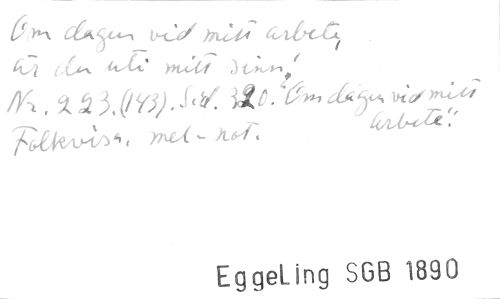 Om dagen vid mitt arbete,
är du uti mitt sinn!
Nr. 223. (143). Sid. 320. "Om dagen vid mitt
arbete."
Folkvisa. mel-not.
EggeLing SGB 1890